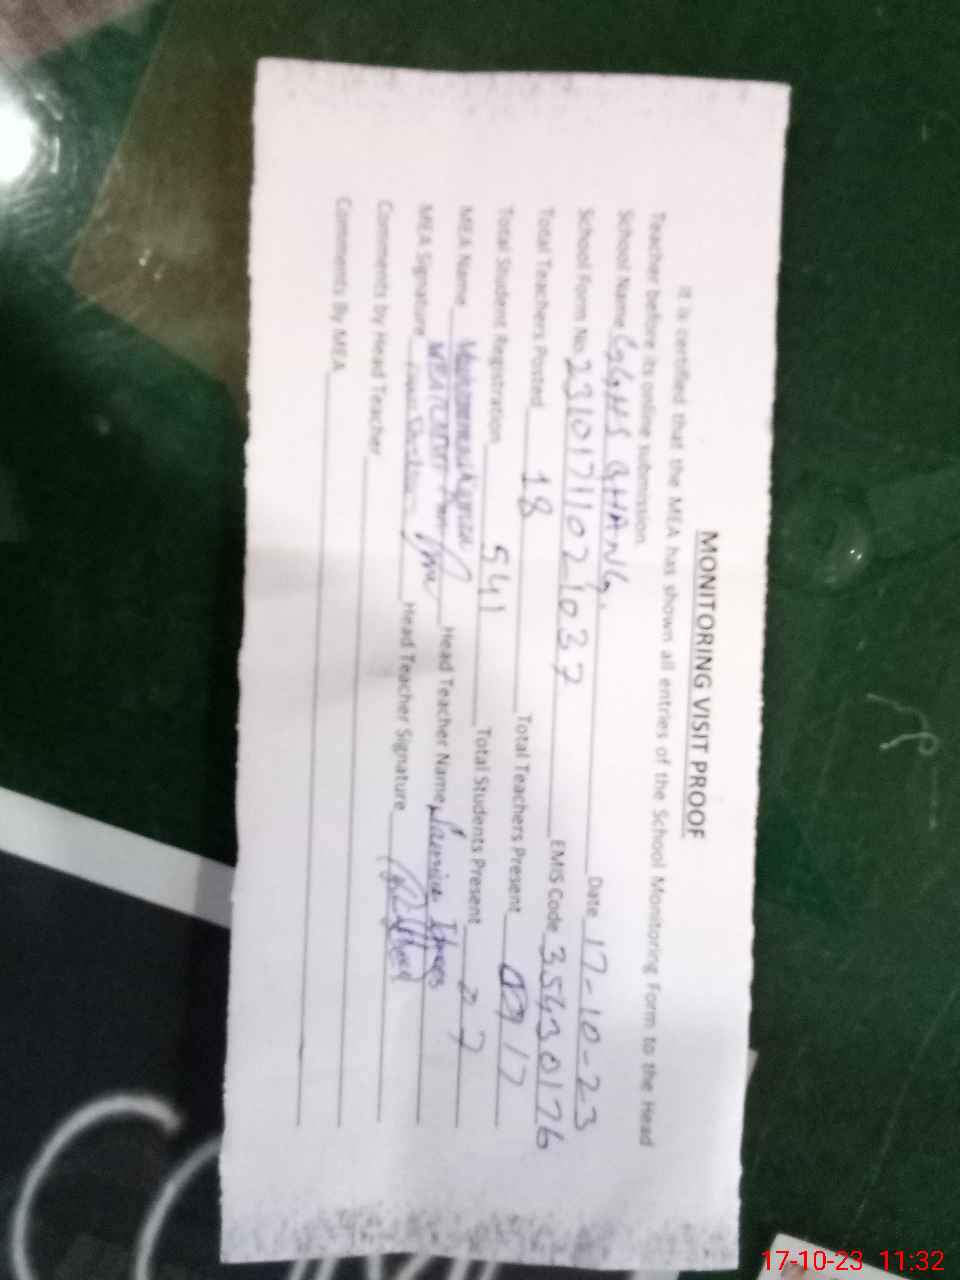 MONITORING VISIT PROOF
It is certified that the MEA has shown all entries of the School Monitoring Form to the Head
Teacher before its online submission.
School Name GGHS GHANG. Date 17-10-23
School Form No. 23101711021037 EMIS Code 35430176
Total Teachers Posted 18 Total Teachers Present 17
Total Student Registration 541 Total Students Present
MEA Name Head Teacher Name
MEA Signature Head Teacher Signature
Comments by Head Teacher
Comments By MEA
17-10-23 11:32